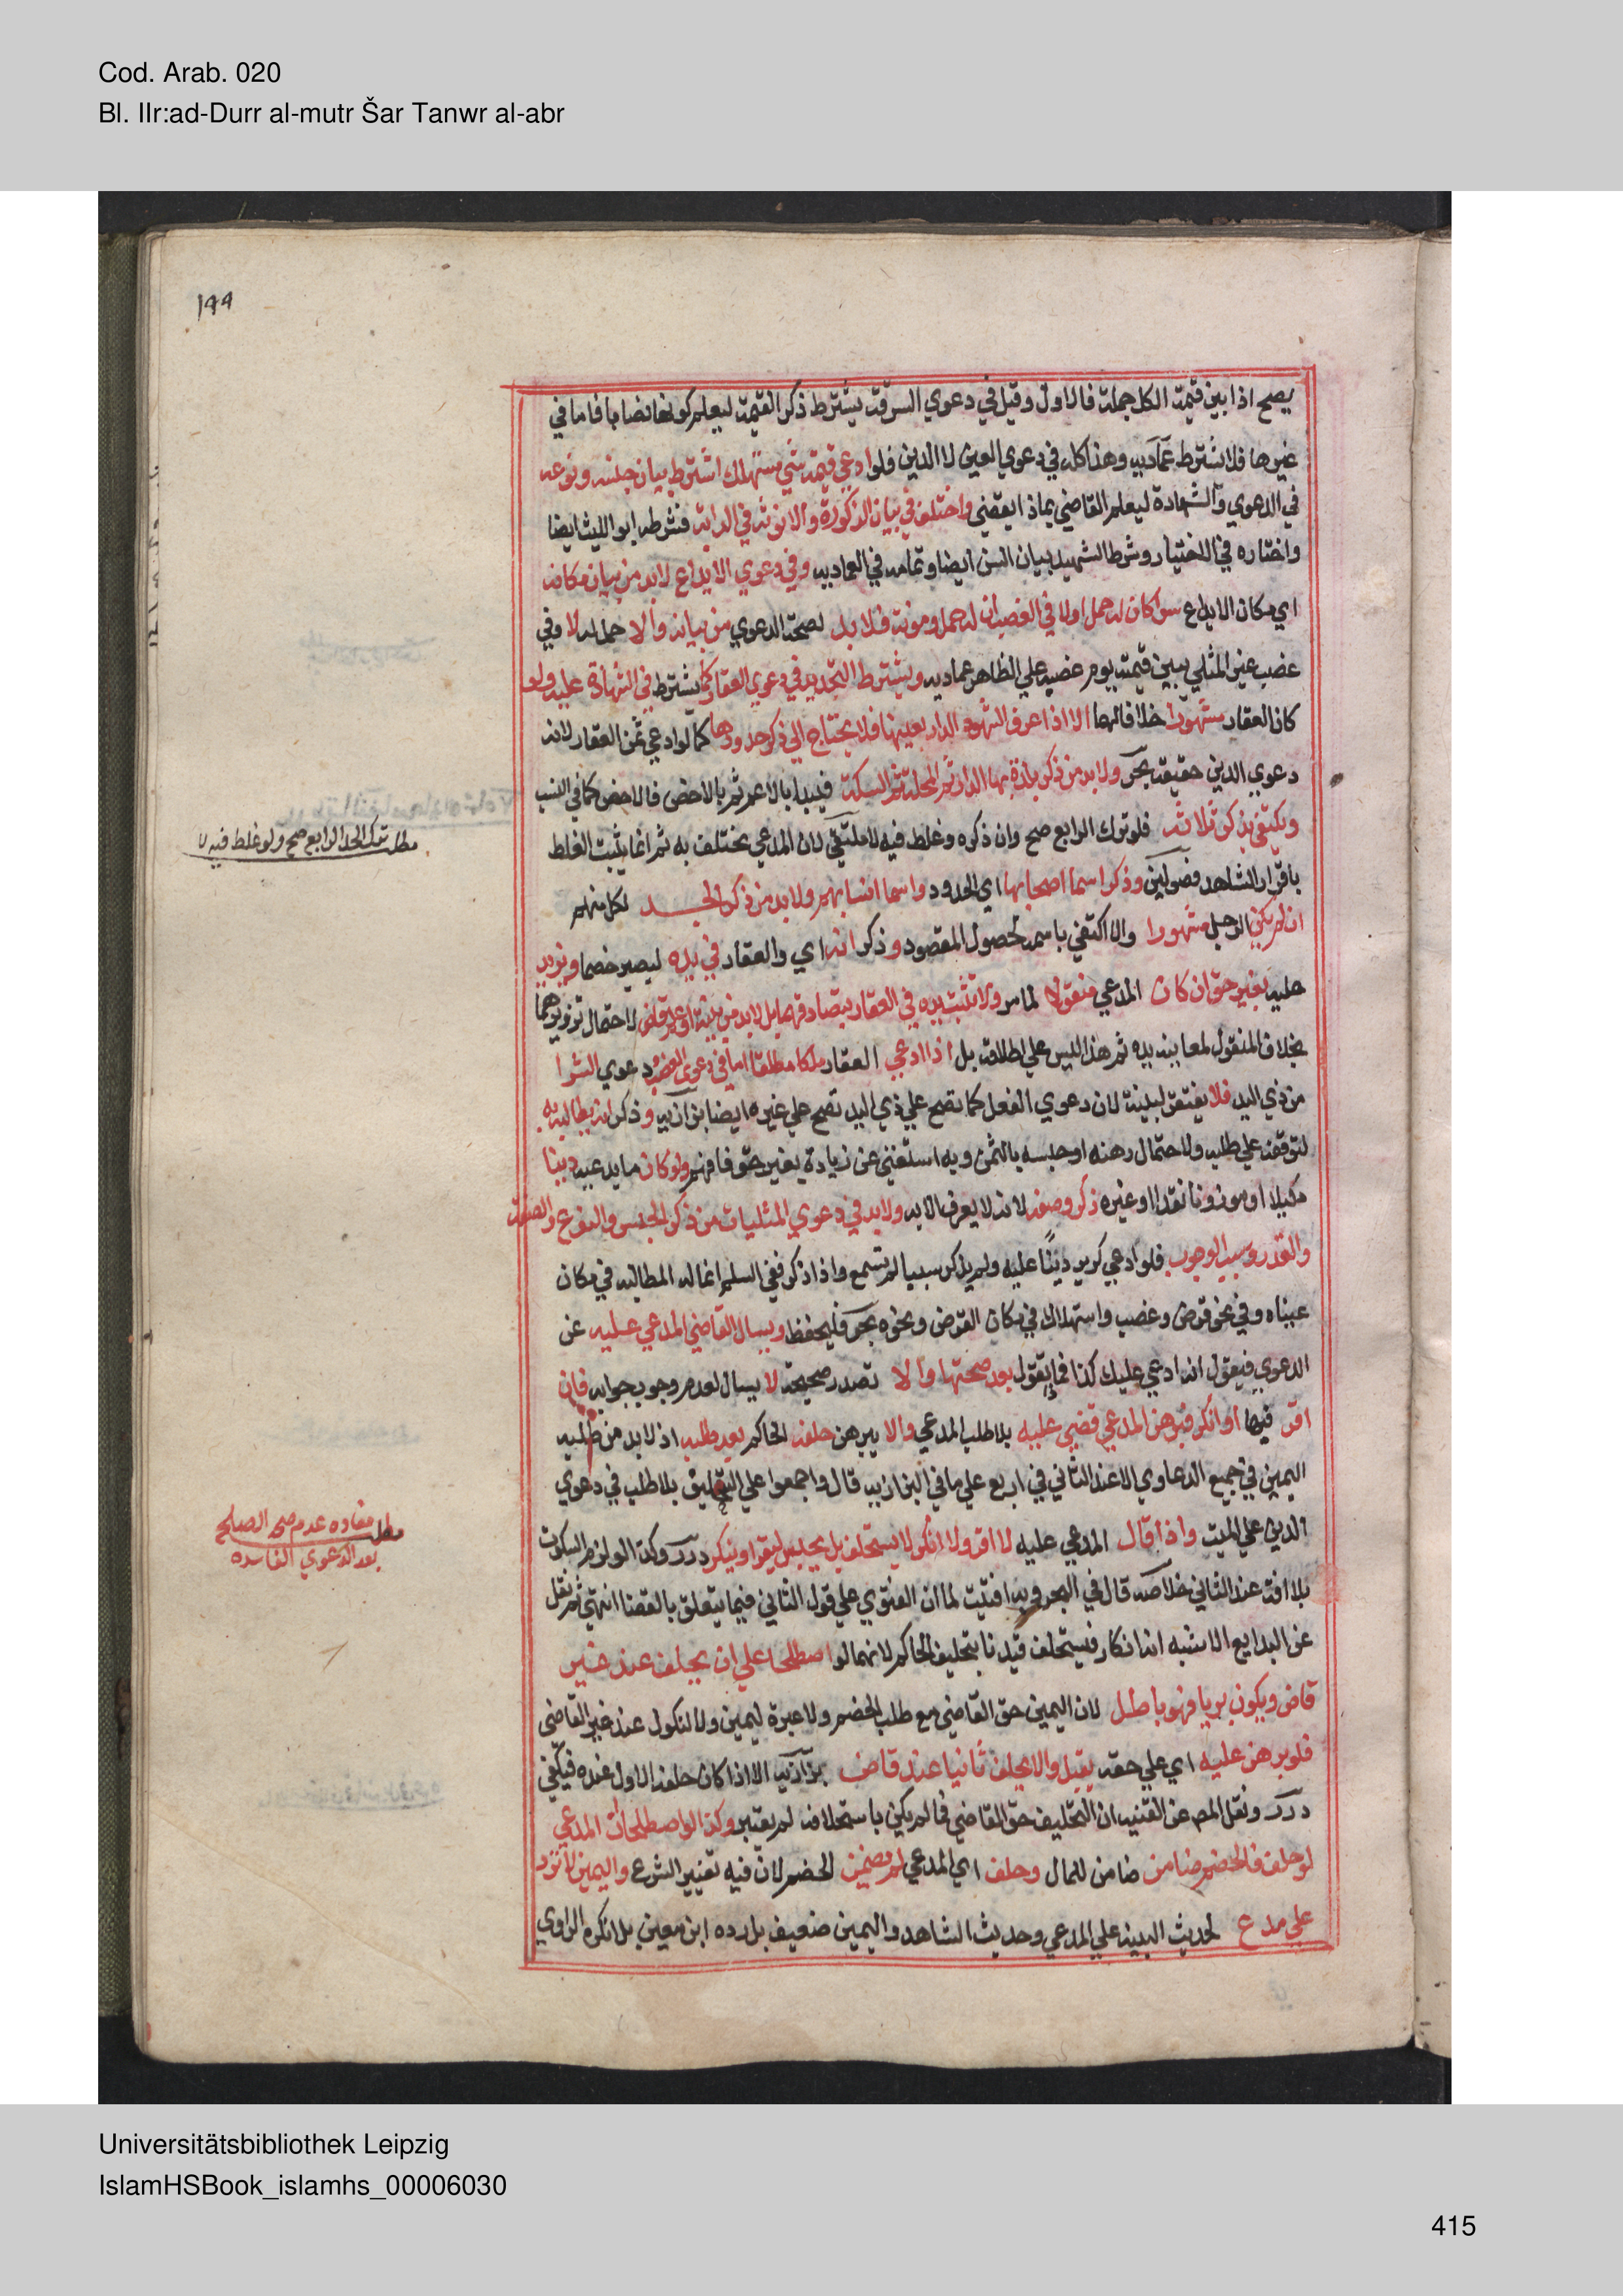 Cod. Arab. 020
Bl. IIr:ad-Durr al-mutr Šar Tanwr al-abr
١٩٩
يصح اذا بين قيمة الكل جملة فالاول وقيل في دعوي السرقة يشترط ذكر القيمة ليعلم كونها نصابا فاما في
غيرها فلا يشترط عماديه وهذا كله في دعوي العين لا الدين فلو ادعي قيمة شي مستهلك اشترط بيان جنسه ونوعه
في الدعوي والشهادة ليعلم القاضي بماذا يقضي واختلف في بيان الذكورة والانوثه في الدابة فشرطه ابو الليث ايضا
واختاره في الاختيار وشرط الشهيد بيان السن ايضا وتمامه في العماديه وفي دعوي الايداع لابد من بيان مكانه
اي مكان الايداع سوا كان له حمل اولا في الغصب ان له حمل ومونة فلا بد لصحة الدعوي من بيانه والا حمل له لا وفي
غصب غير المثلي يبين قيمته يوم غصبه علي الظاهر عماديه ويشترط التحديد في دعوي العقار كما يشترط في الشهادة عليه ولو
كان العقار مشهورا خلافا لهما الا اذا عرف الشهود الدار بعينها فلا يحتاج الي ذكر حدودها كما لو ادعي ثمن العقار لانه
دعوي الدين حقيقة بحر ولابد من ذكر بلدة بها الدار ثم المحلة ثم السكة فيبدا بالاعم ثم بالاخص فالاخص كما في النسب
ويكتفي بذكر ثلاثة فلو ترك الرابع صح وان ذكره وغلط فيه لا ملتقي لان المدعي يختلف به ثم انما يثبت الغلط
باقرار الشاهد فصولين وذكر اسما اصحابها اي الحدود واسما انسابهم ولابد من ذكر الجد لكل منهم
ان لم يكن الرجل مشهورا والا اكتفي باسمه لحصول المقصود وذكر انه اي والعقار في يده ليصير خصما ويزيد
عليه بغير حق ان كان المدعي منقولا لما مر ولا تثبت يده في العقار بتصادقهما بل لابد من بينة او علم قاض لاحتمال تزويرهما
بخلاف المنقول لمعاينة يده ثم هذا ليس علي اطلاقه بل اذا ادعي العقار ملكا مطلقا اما في دعوي الغصب ودعوي الشرا
من ذي اليد فلا يفتقر لبينة لان دعوي الفعل كما تصح علي ذي اليد تصح علي غيره ايضا بزازيه وذكر انه يطالبه به
لتوقفه علي طلبه ولاحتمال رهنه او حبسه بالثمن وبه استغني عن زيادة بغير حق فافهم ولو كان ما يدعيه دينا
مكيلا او موزونا نقدا او غيره ذكر وصفه لانه لا يعرف الا به ولابد في دعوي المثليات من ذكر الجنس والنوع والصفة
والقدر وسبب الوجوب فلو ادعي كر بر دينًا عليه ولم يذكر سببا لم تسمع واذا ذكر ففي السلم انما له المطالبه في مكان
عيناه وفي نحو قرض وغصب واستهلاك في مكان القرض ونحوه بحر فليحفظ ويسال القاضي المدعي عليه عن
الدعوي فيقول انه ادعي عليك كذا فماذا تقول بعد صحتها والا تصدر صحيحة لا يسال لعدم وجوب جوابه فان
اقر فيها او انكر فبرهن المدعي قضي عليه بلا طلب المدعي والا يبرهن حلفه الحاكم بعد طلبه اذ لابد من طلبه
اليمين في جميع الدعاوي الا عند الثاني في اربع علي ما في البزازيه قال واجمعوا علي التحليف بلا طلب في دعوي
الدين علي الميت واذا قال المدعي عليه لا اقر ولا انكر لا يستحلف بل يحبس ليقر او ينكر درر وكذا لو لزم السكوت
بلا افة عند الثاني خلاصه قال في البحر وبه افتيت لما ان الفتوي علي قول الثاني فيما يتعلق بالقضا انتهي ثم نقل
عن البدايع الاشبه انه انكار فيستحلف قيدنا بتحليف الحاكم لانهما لو اصطلحا علي ان يحلف عند غير
قاض ويكون بريا فهو باطل لان اليمين حق القاضي مع طلب الخصم ولا عبرة ليمين ولا لنكول عند غير القاضي
فلو برهن عليه اي علي حقه يقبل والا يحلف ثانيا عند قاض بزازيه الا اذا كان حلفه الاول عنده فيكفي
درر ونقل المص عن القنيه ان التحليف حق القاضي فما لم يكن باستحلافه لم يعتبر وكذا لو اصطلحا ان المدعي
لو حلف فالخصم ضامن ضامن للمال وحلف اي المدعي لم يضمن الخصم لان فيه تغيير الشرع واليمين لا ترد
علي مدع لحديث البينه علي المدعي وحديث الشاهد واليمين ضعيف بل رده ابن معين بل انكره الراوي
مطلب ترك الحد الرابع صح ولو غلط فيه لا
مطلب مفاده عدم صحة الصلح
بعد الدعوي الفاسده
Universitätsbibliothek Leipzig
IslamHSBook_islamhs_00006030
415